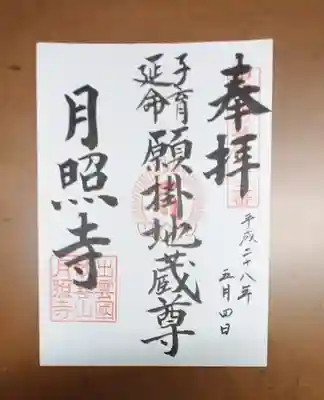 奉拝
平成二十八年
五月四日
子育
延命
願掛地蔵尊
月照寺
出雲国
月照寺